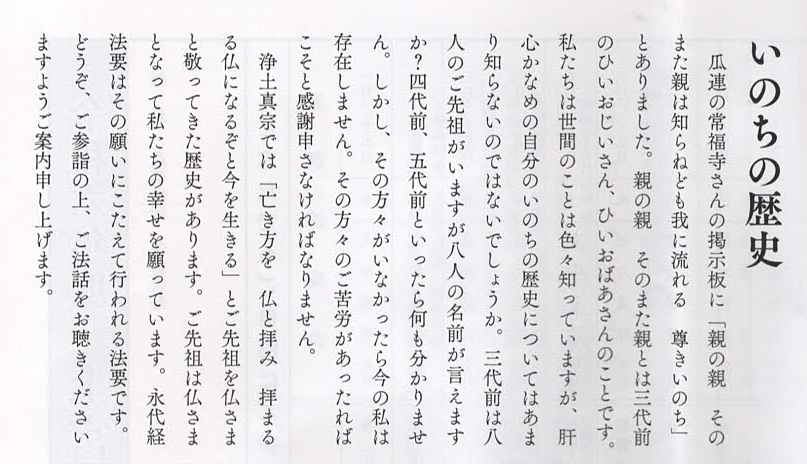 いのちの歴史
瓜連の常福寺さんの掲示板に「親の親　その
また親は知らねども我に流れる　尊きいのち」
とありました。親の親　そのまた親とは三代前
のひいおじいさん、ひいおばあさんのことです。
私たちは世間のことは色々知っていますが、肝
心かなめの自分のいのちの歴史についてはあま
り知らないのではないでしょうか。三代前は八
人のご先祖がいますが八人の名前が言えます
か？四代前、五代前といったら何も分かりませ
ん。しかし、その方々がいなかったら今の私は
存在しません。その方々のご苦労があったれば
こそと感謝申さなければなりません。
　浄土真宗では「亡き方を　仏と拝み　拝まる
る仏になるぞと今を生きる」とご先祖を仏さま
と敬ってきた歴史があります。ご先祖は仏さま
となって私たちの幸せを願っています。永代経
法要はその願いにこたえて行われる法要です。
どうぞ、ご参詣の上、ご法話をお聴きください
ますようご案内申し上げます。